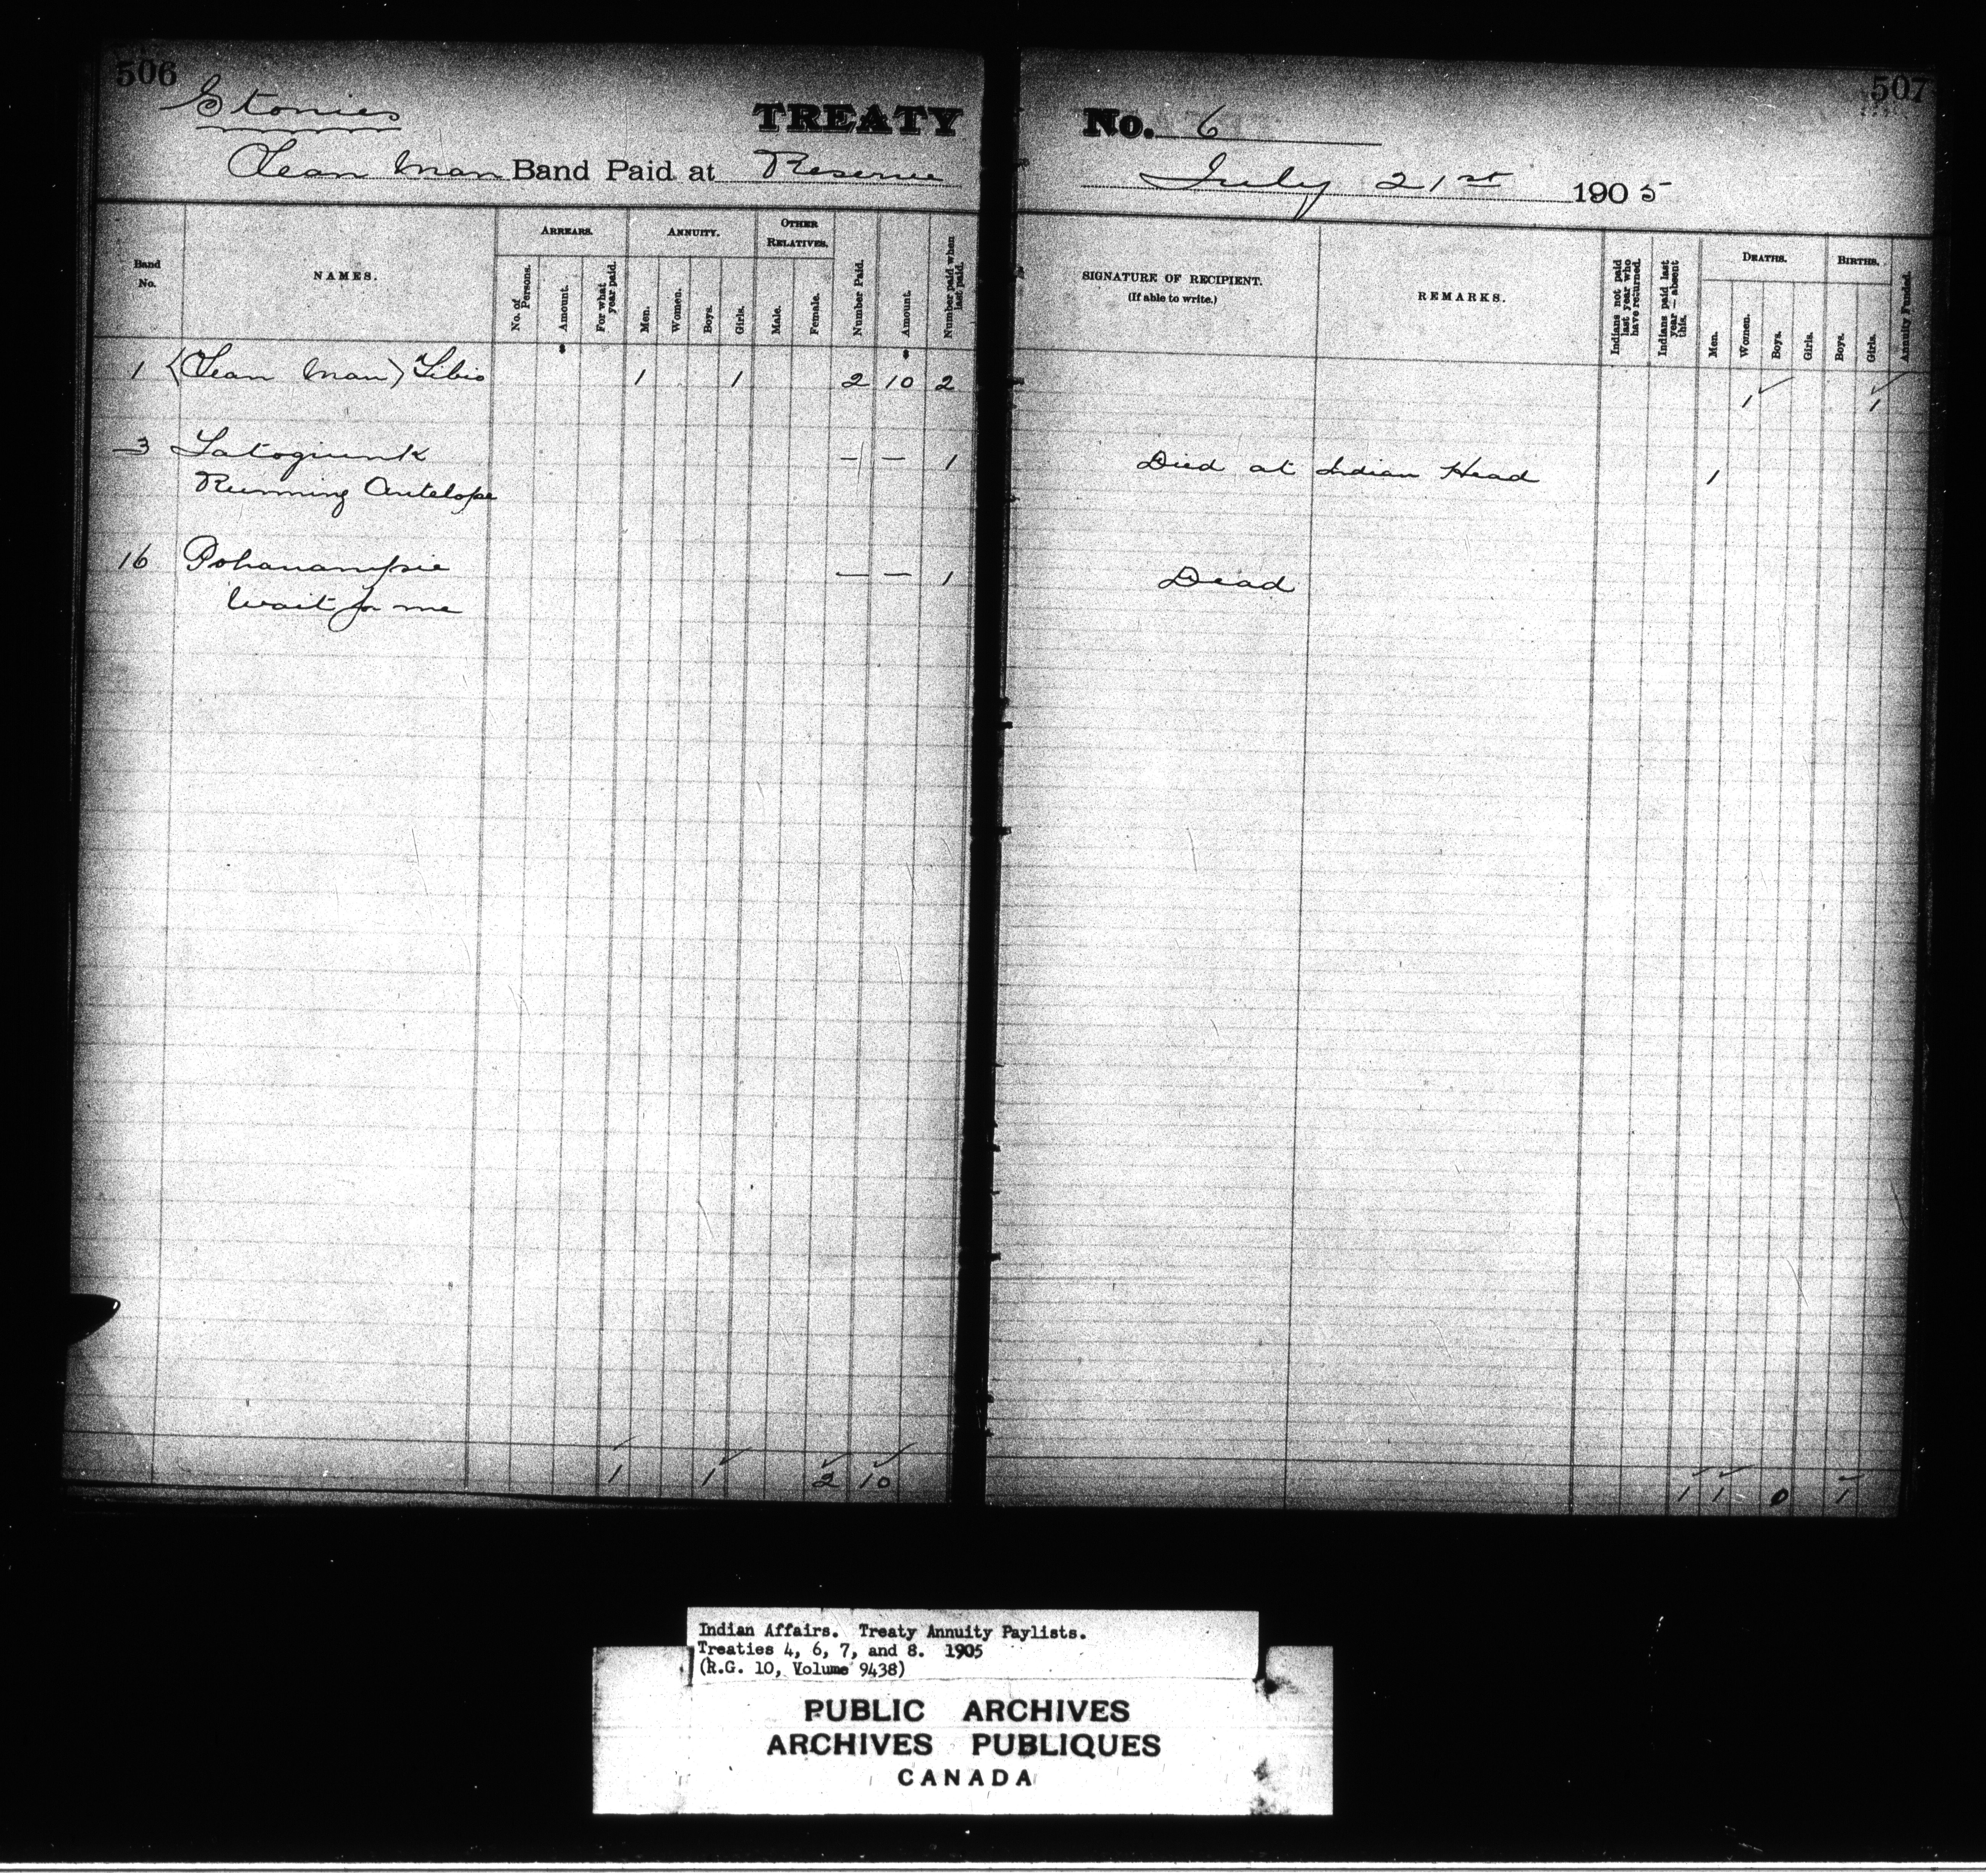 506
Stonies
TREATY
Lean Man Band Paid at Reserve
Band No.
NAMES.
ARREARS.
No. of Persons.
Amount.
For what year paid.
ANNUITY.
Men.
Women.
Boys.
Girls.
OTHER RELATIVES.
Male.
Female.
Number Paid.
Amount.
Number paid when last paid.
1 (Lean Man) 1 1 2 10 2
3 — — 1
Running Antelope
16 — — 1
Wait for me
1 1 2 10
507
No. 6
July 21st 1905
SIGNATURE OF RECIPIENT.
(If able to write.)
REMARKS.
Indians not paid last year who have returned.
Indians paid last year — absent this.
DEATHS.
Men.
Women.
Boys.
Girls.
BIRTHS.
Boys.
Girls.
Annuity Funded.
1 1
Died at Indian Head 1
Dead
1 1 0 1
Indian Affairs. Treaty Annuity Paylists.
Treaties 4, 6, 7, and 8. 1905
(R.G. 10, Volume 9438)
PUBLIC ARCHIVES
ARCHIVES PUBLIQUES
CANADA